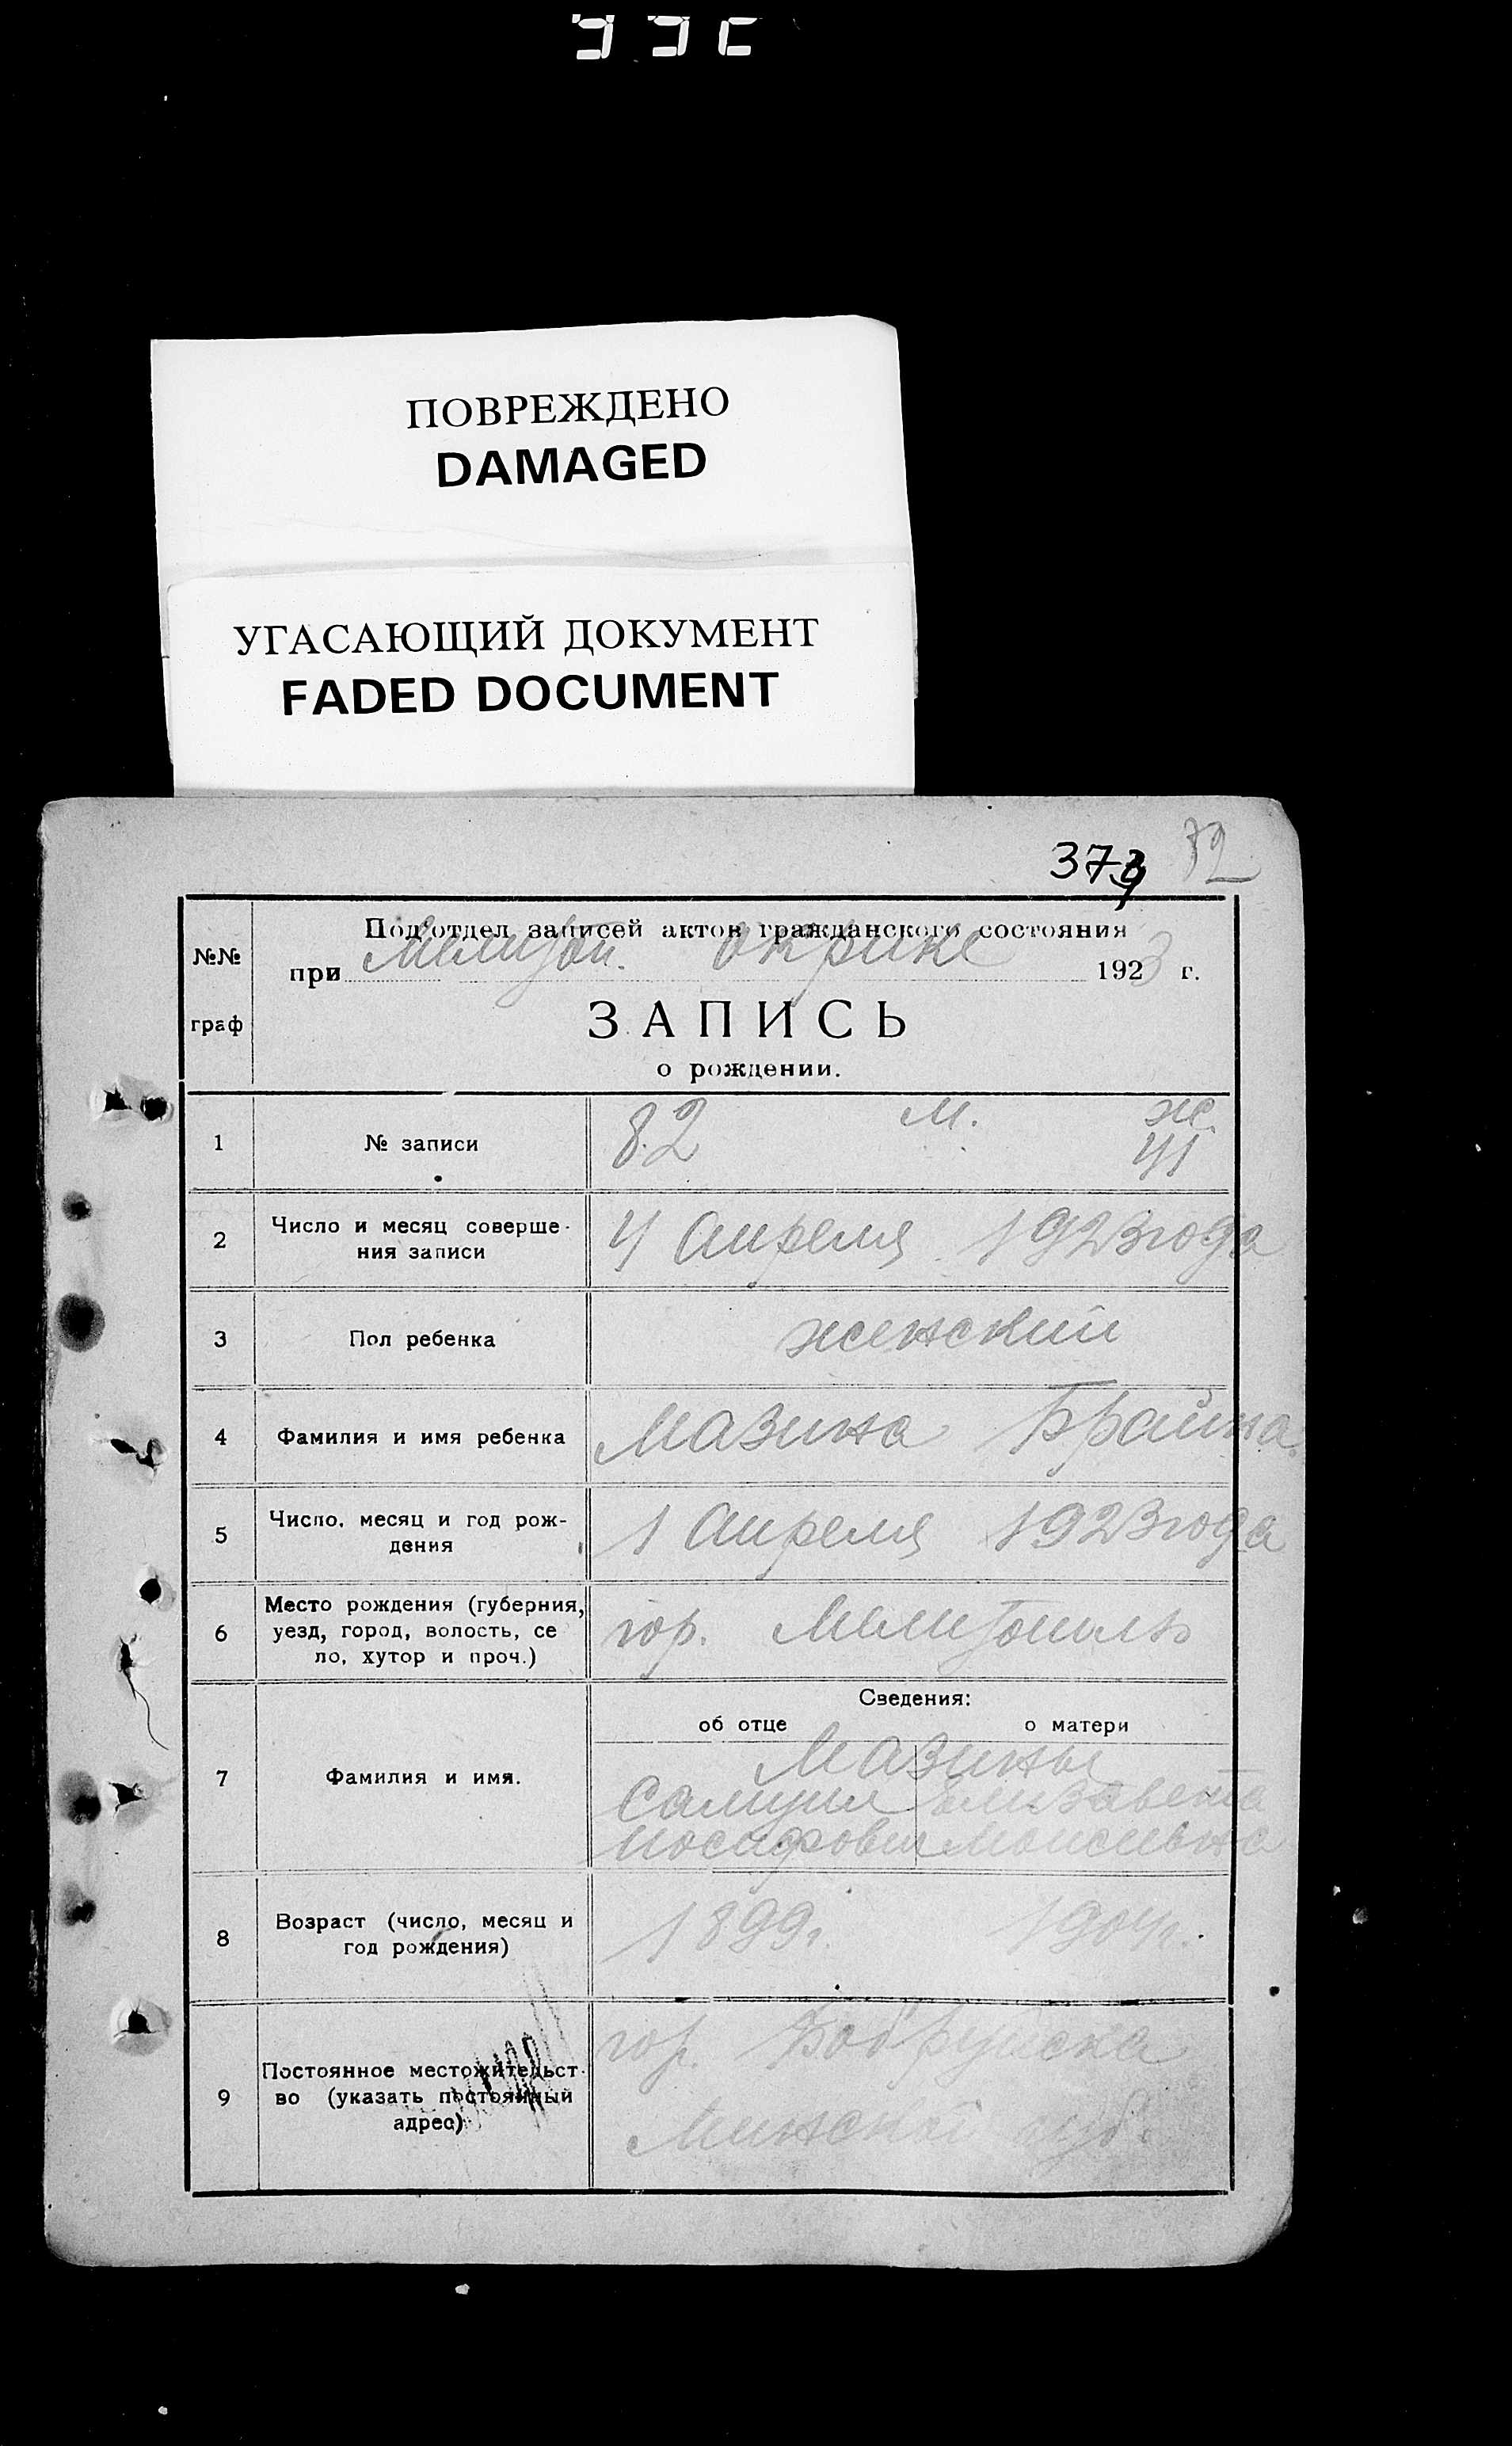 ПОВРЕЖДЕНО
DAMAGED
УГАСАЮЩИЙ ДОКУМЕНТ
FADED DOCUMENT
72
№№
граф
Под'отдел записей актов гражданского состояния
при Мелитоп. окрике 1923 г.
ЗАПИСЬ
о рождении.
1 № записи 82 м. ж. 41
2 Число и месяц соверше-
ния записи
4 Апреля 1923 года
3 Пол ребенка женский
4 Фамилия и имя ребенка Мазина Брайна
5 Число, месяц и год рож-
дения
1 Апреля 1923 года
6 Место рождения (губерния,
уезд, город, волость, се
ло, хутор и проч.)
гор. Мелитополь
Сведения:
об отце о матери
7 Фамилия и имя.
Мазины
Самуил Елизавета
Иосифович Моисеевна
8 Возраст (число, месяц и
год рождения)
1899г. 1904г.
9 Постоянное местожительст-
во (указать постоянный
адрес)
гор. Бобруйска
Минской губ.